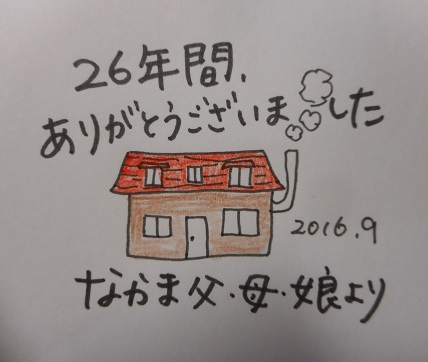 26年間、
ありがとうございました
2016.9
なかま父・母・娘より